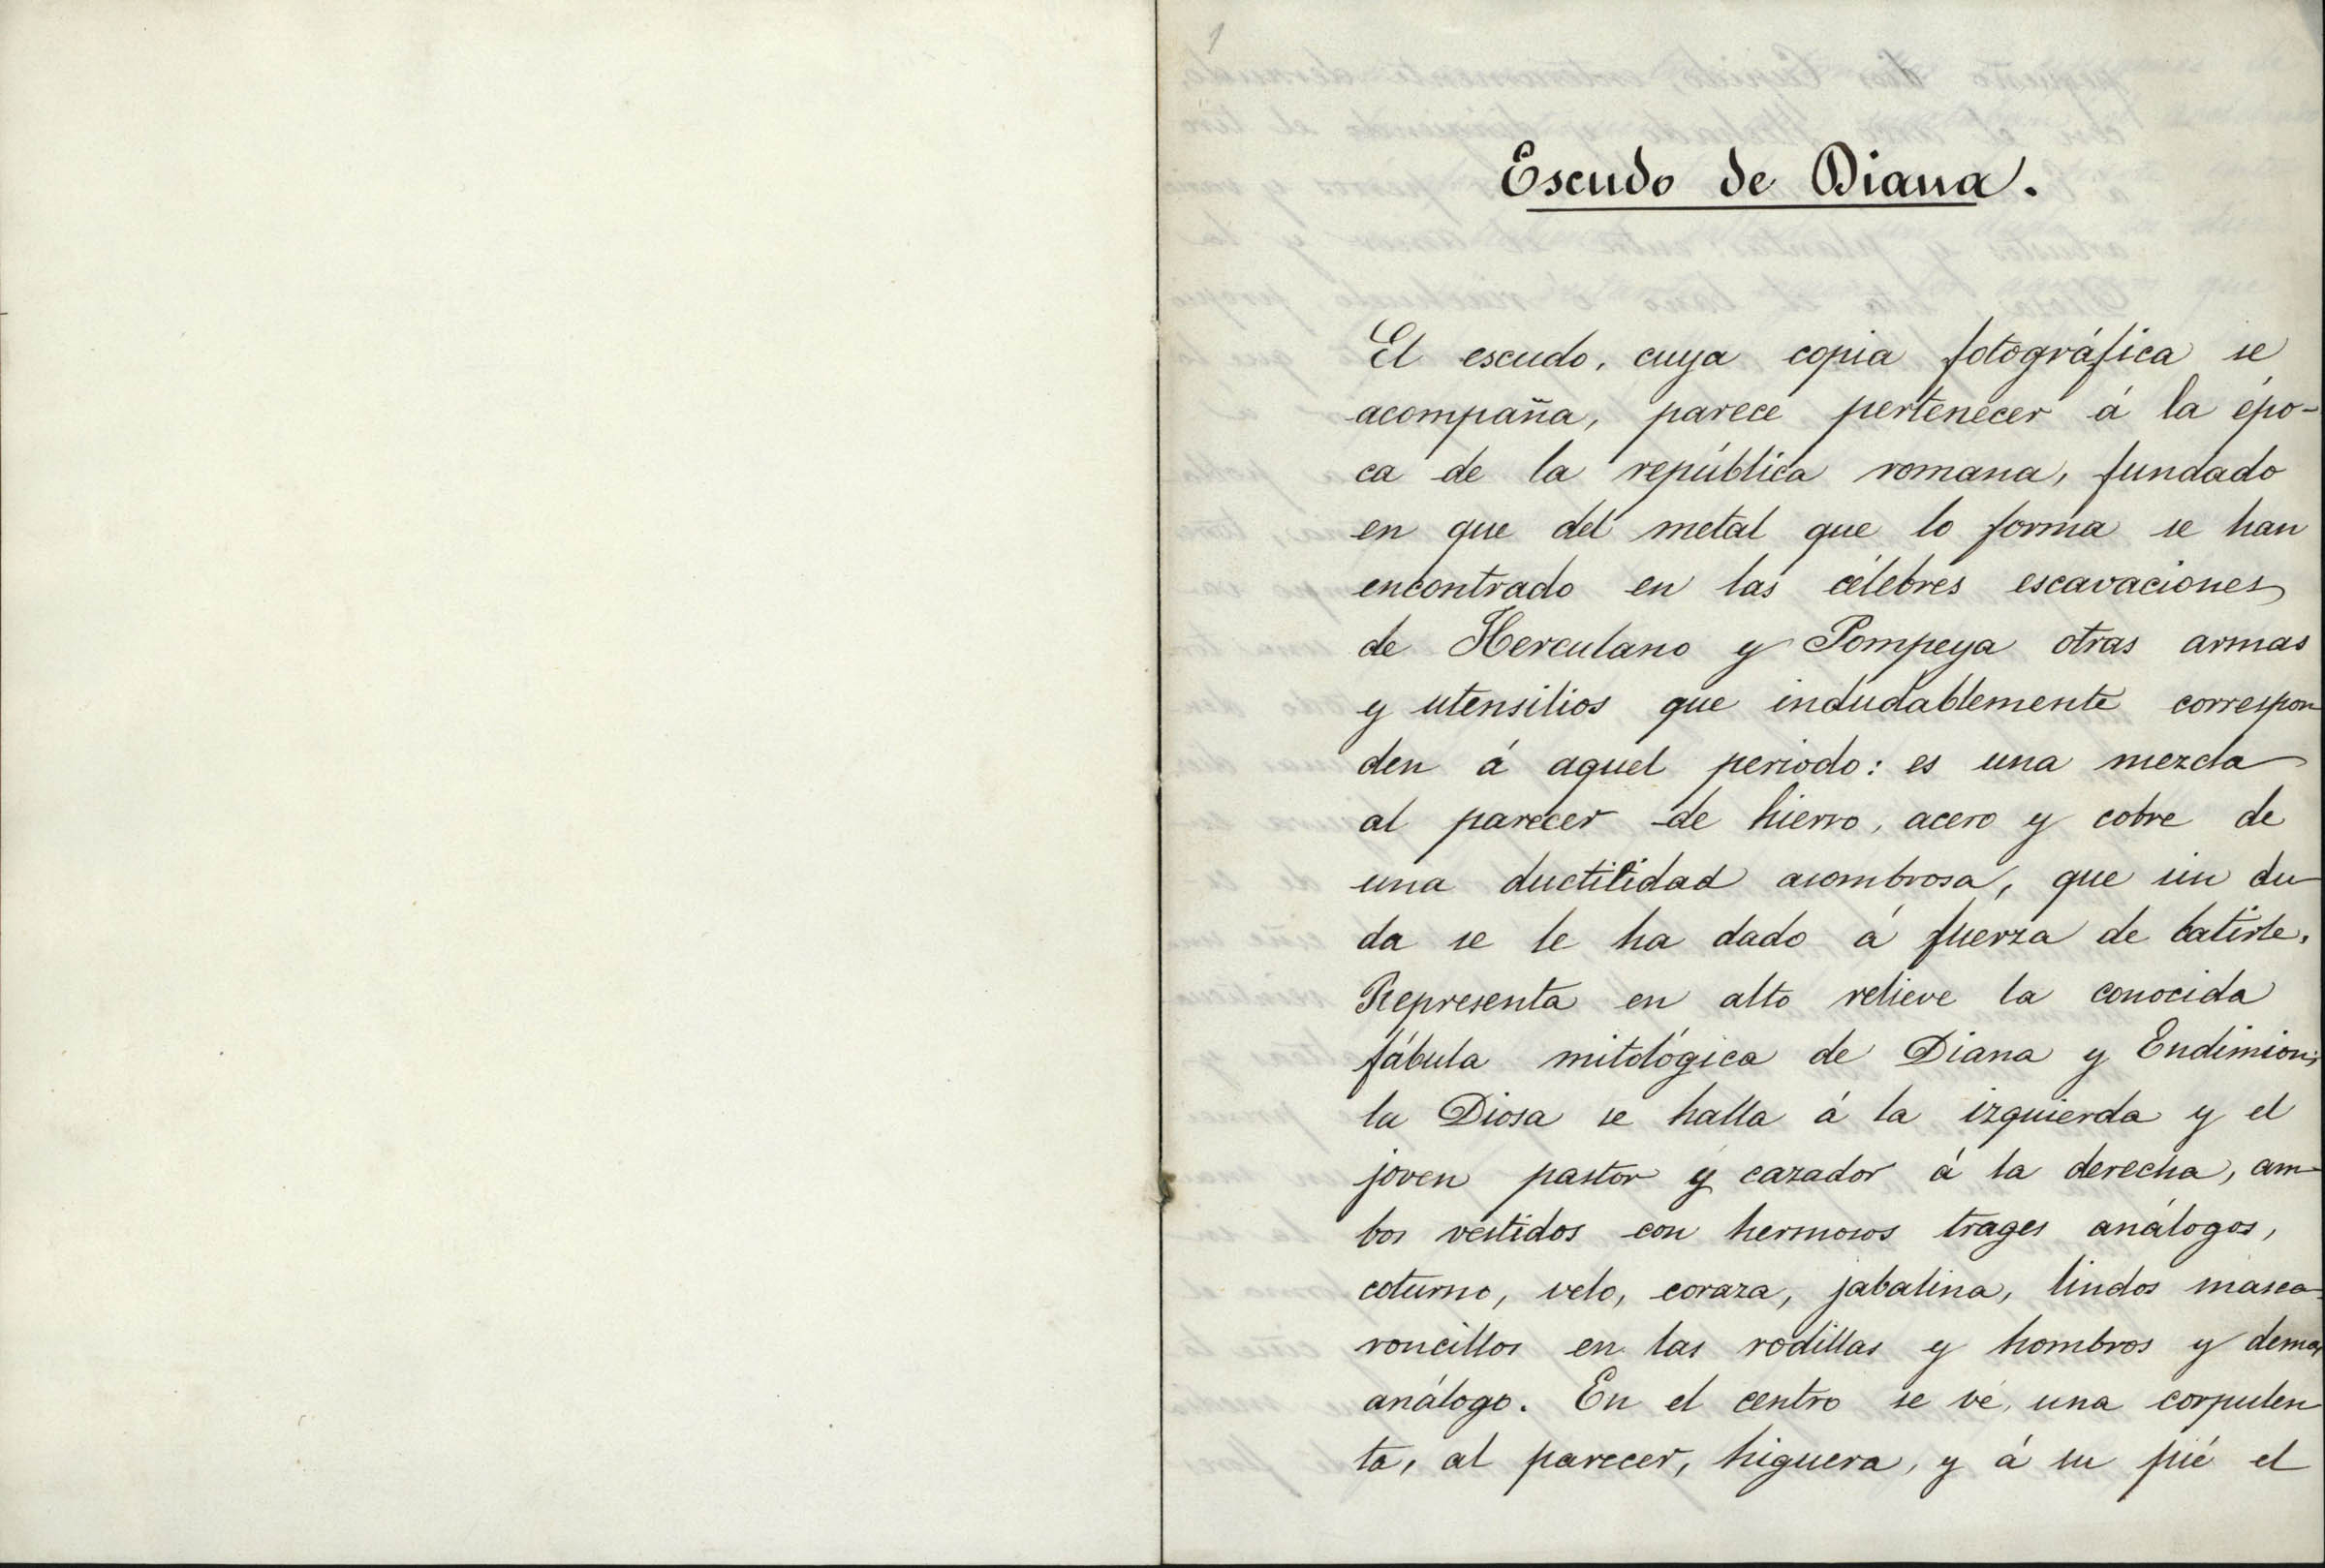 1
Escudo de Diana.
El escudo, cuya copia fotográfica se
acompaña, parece pertenecer á la épo-
ca de la república romana, fundado
en que del metal que lo forma se han
encontrado en las célebres escavaciones
de Herculano y Pompeya otras armas
y utensilios que indudablemente correspon
den á aquel periodo: es una mezcla
al parecer de hierro, acero y cobre de
una ductilidad asombrosa, que sin du-
da se le ha dado á fuerza de batirle.
Representa en alto relieve la conocida
fábula mitológica de Diana y Endimion;
la Diosa se halla á la izquierda y el
joven pastor y cazador á la derecha, am-
bos vestidos con hermosos trages análogos,
coturno, velo, coraza, jabalina, lindos masca-
roncillos en las rodillas y hombros y demas
análogo. En el centro se vé, una corpulen
ta, al parecer, higuera, y á su pié el